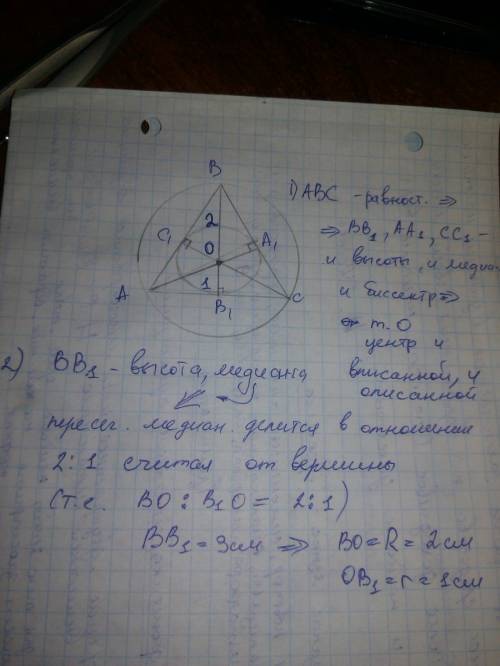 B
2
C₁
O
A₁
1
A
B₁
C
1) ABC - равност. ⇒
⇒ BB₁, AA₁, CC₁ -
и высоты, и медиан
и биссектр ⇒
т. O
центр и
вписанной, и
описанной
2) BB₁ - высота, медиана
пересеч. медиан. делится в отношении
2:1 считая от вершины
(т.е. BO : B₁O = 2:1)
BB₁ = 3см ⇒ BO = R = 2см
OB₁ = r = 1см